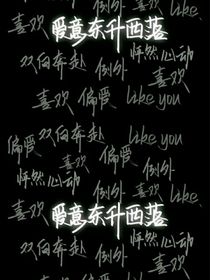 喜欢 Like
爱意东升西落
喜欢
双向奔赴 例外 怦然心动
喜欢 偏爱 Like you
双向奔赴 Like you
偏爱 喜欢 偏爱
怦然心动 例外 喜欢
喜欢 Like
爱意东升西落
双向奔赴 例外 怦然心动
喜欢